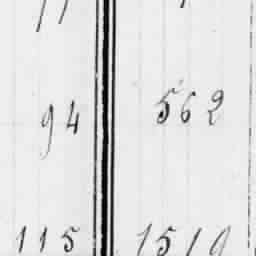 94 562
115 1519